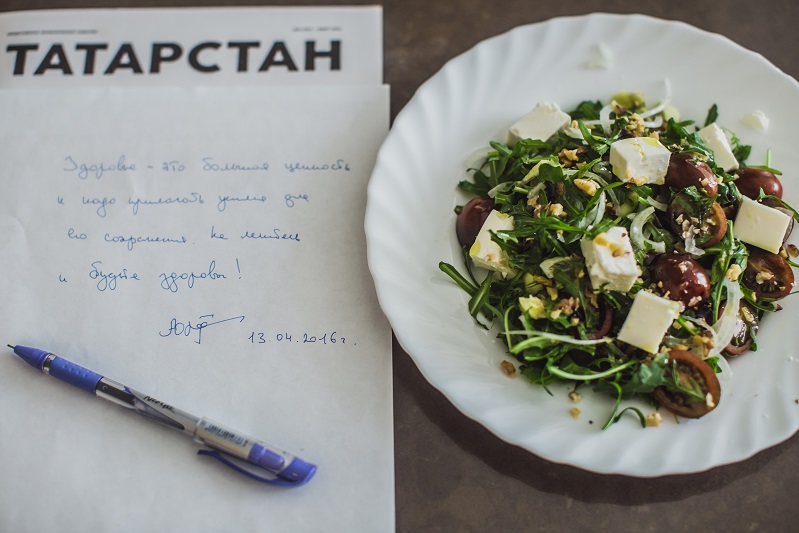 ТАТАРСТАН
Здоровье - это большая ценность
и надо прилагать усилия для
его сохранения. Не ленитесь
и будьте здоровы!
13.04.2016г.